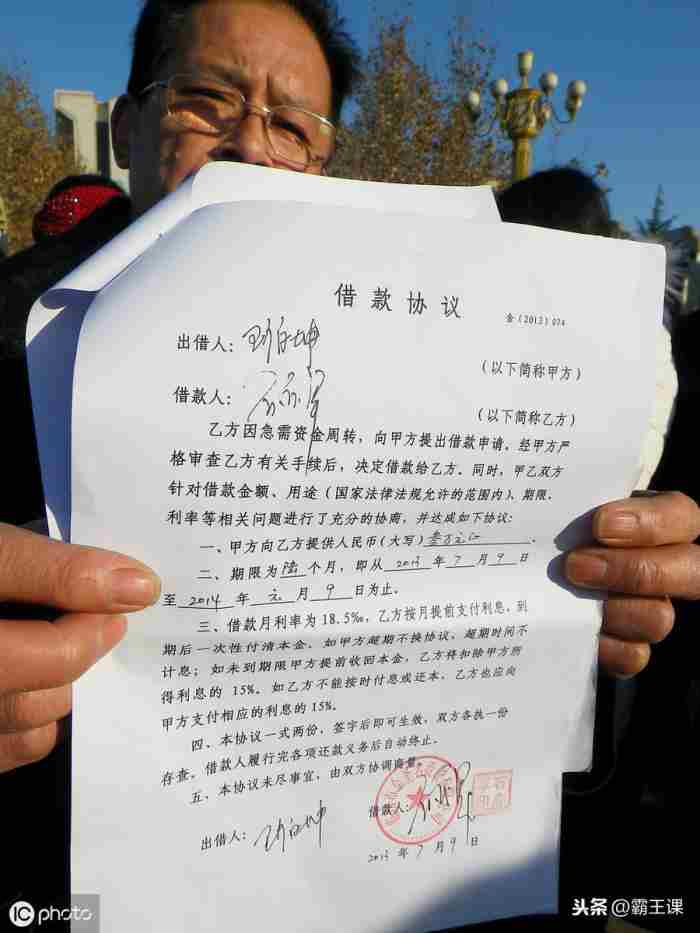 借款协议
金(2013)074
出借人:
(以下简称甲方)
借款人:
(以下简称乙方)
乙方因急需资金周转,向甲方提出借款申请。经甲方严
格审查乙方有关手续后,决定借款给乙方。同时,甲乙双方
针对借款金额、用途(国家法律法规允许的范围内)、期限、
利率等相关问题进行了充分的协商,并达成如下协议:
一、甲方向乙方提供人民币(大写)叁万元
二、期限为陆个月,即从 2013 年 7 月 9 日
至 2014 年 元 月 9 日为止。
三、借款月利率为18.5‰,乙方按月提前支付利息,到
期后一次性付清本金。如甲方超期不换协议,超期时间不
计息;如未到期限甲方提前收回本金,乙方将扣除甲方所
得利息的15%。如乙方不能按时付息或还本,乙方也应向
甲方支付相应的利息的15%。
四、本协议一式两份,签字后即可生效,双方各执一份
存查,借款人履行完各项还款义务后自动终止。
五、本协议未尽事宜,由双方协调商量。
出借人:
借款人:
2013 年 7 月 9 日
iC photo
头条@霸王课